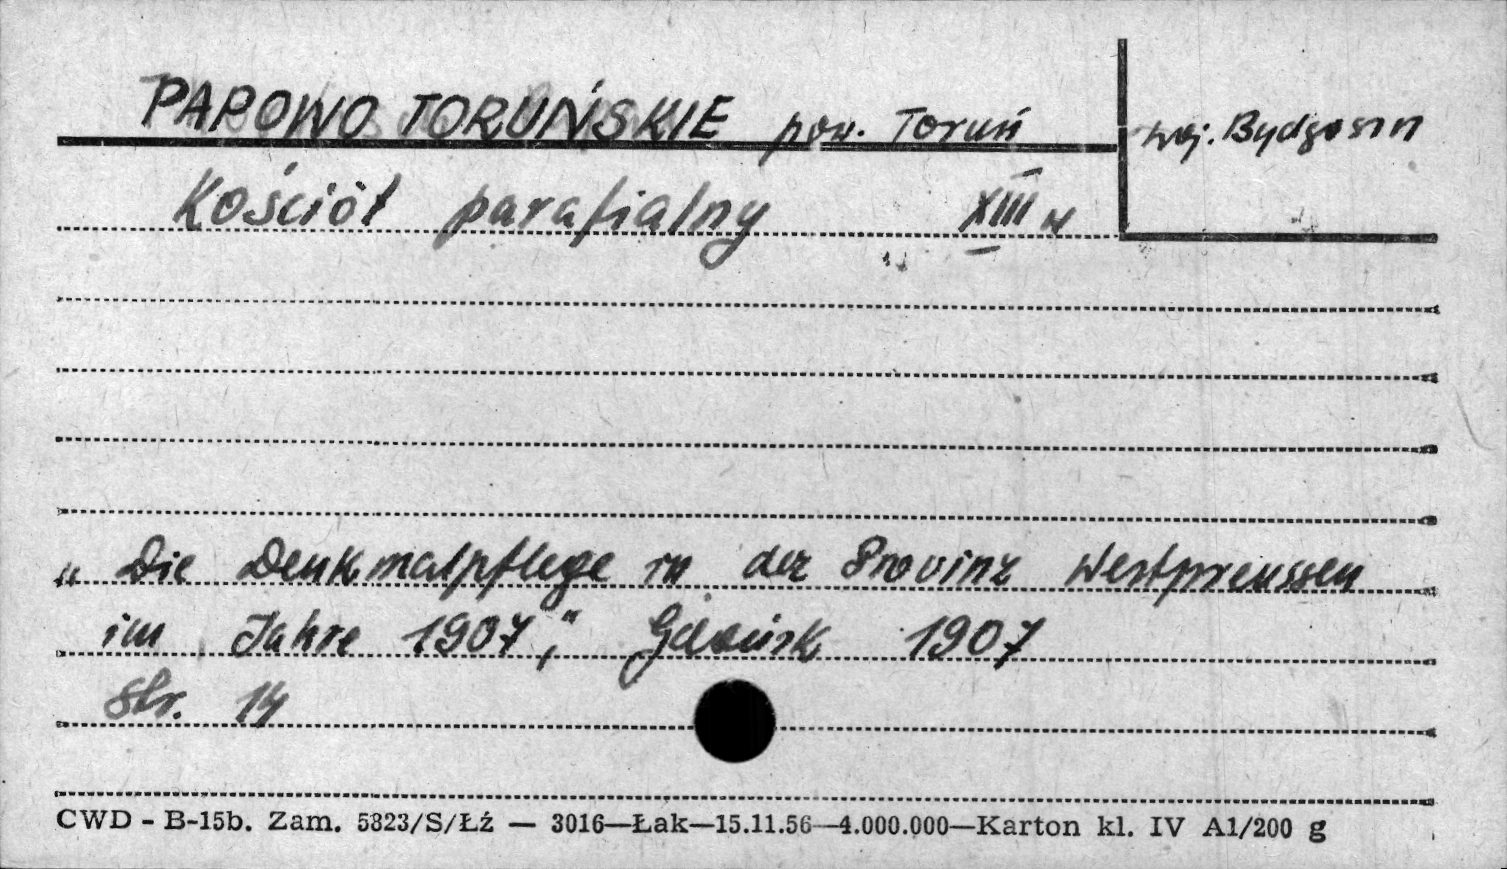 PAPOWO TORUŃSKIE pow. Toruń
woj. Bydgoszcz
Kościół parafialny XIII w
„Die Denkmalpflege in der Provinz Westpreussen
im Jahre 1907," Gdańsk 1907
Str. 14
CWD - B-15b. Zam. 5323/S/Łź — 3016—Łak—15.11.56—4.000.000—Karton kl. IV A1/200 g